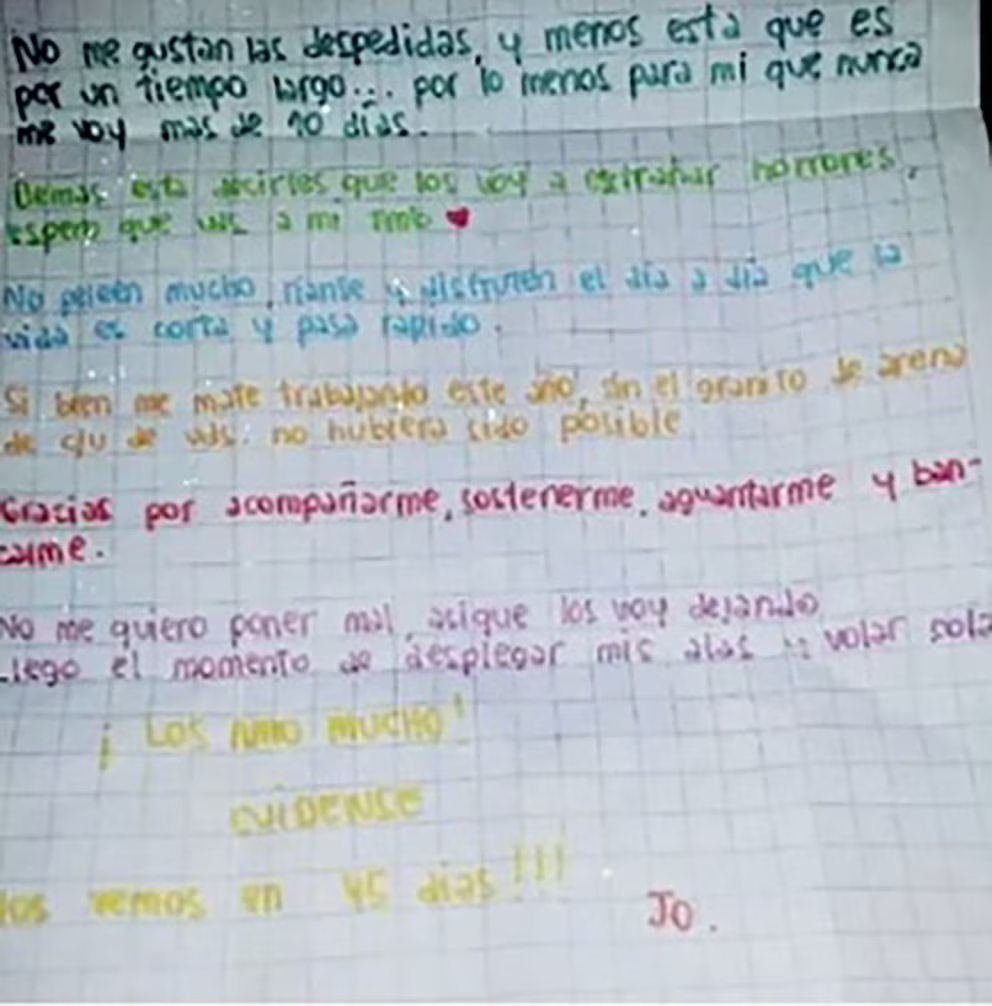 No me gustan las despedidas, y menos esta que es
por un tiempo largo... por lo menos para mi que nunca
me voy mas de 10 dias.
Demas esta decirles que los voy a extrañar horrores,
espero que uds a mi tmb ♥
No peleen mucho, rianse y disfruten el dia a dia que la
vida es corta y pasa rapido.
Si bien me mate trabajando este año, sin el granito de arena
de c/u de uds. no hubiera sido posible
Gracias por acompañarme, sostenerme, aguantarme y ban-
carme.
No me quiero poner mal, asique los voy dejando
Llego el momento de desplegar mis alas y volar sola
¡Los AMO MUCHO!
CUIDENSE
Nos vemos en 45 dias!!!
Jo.